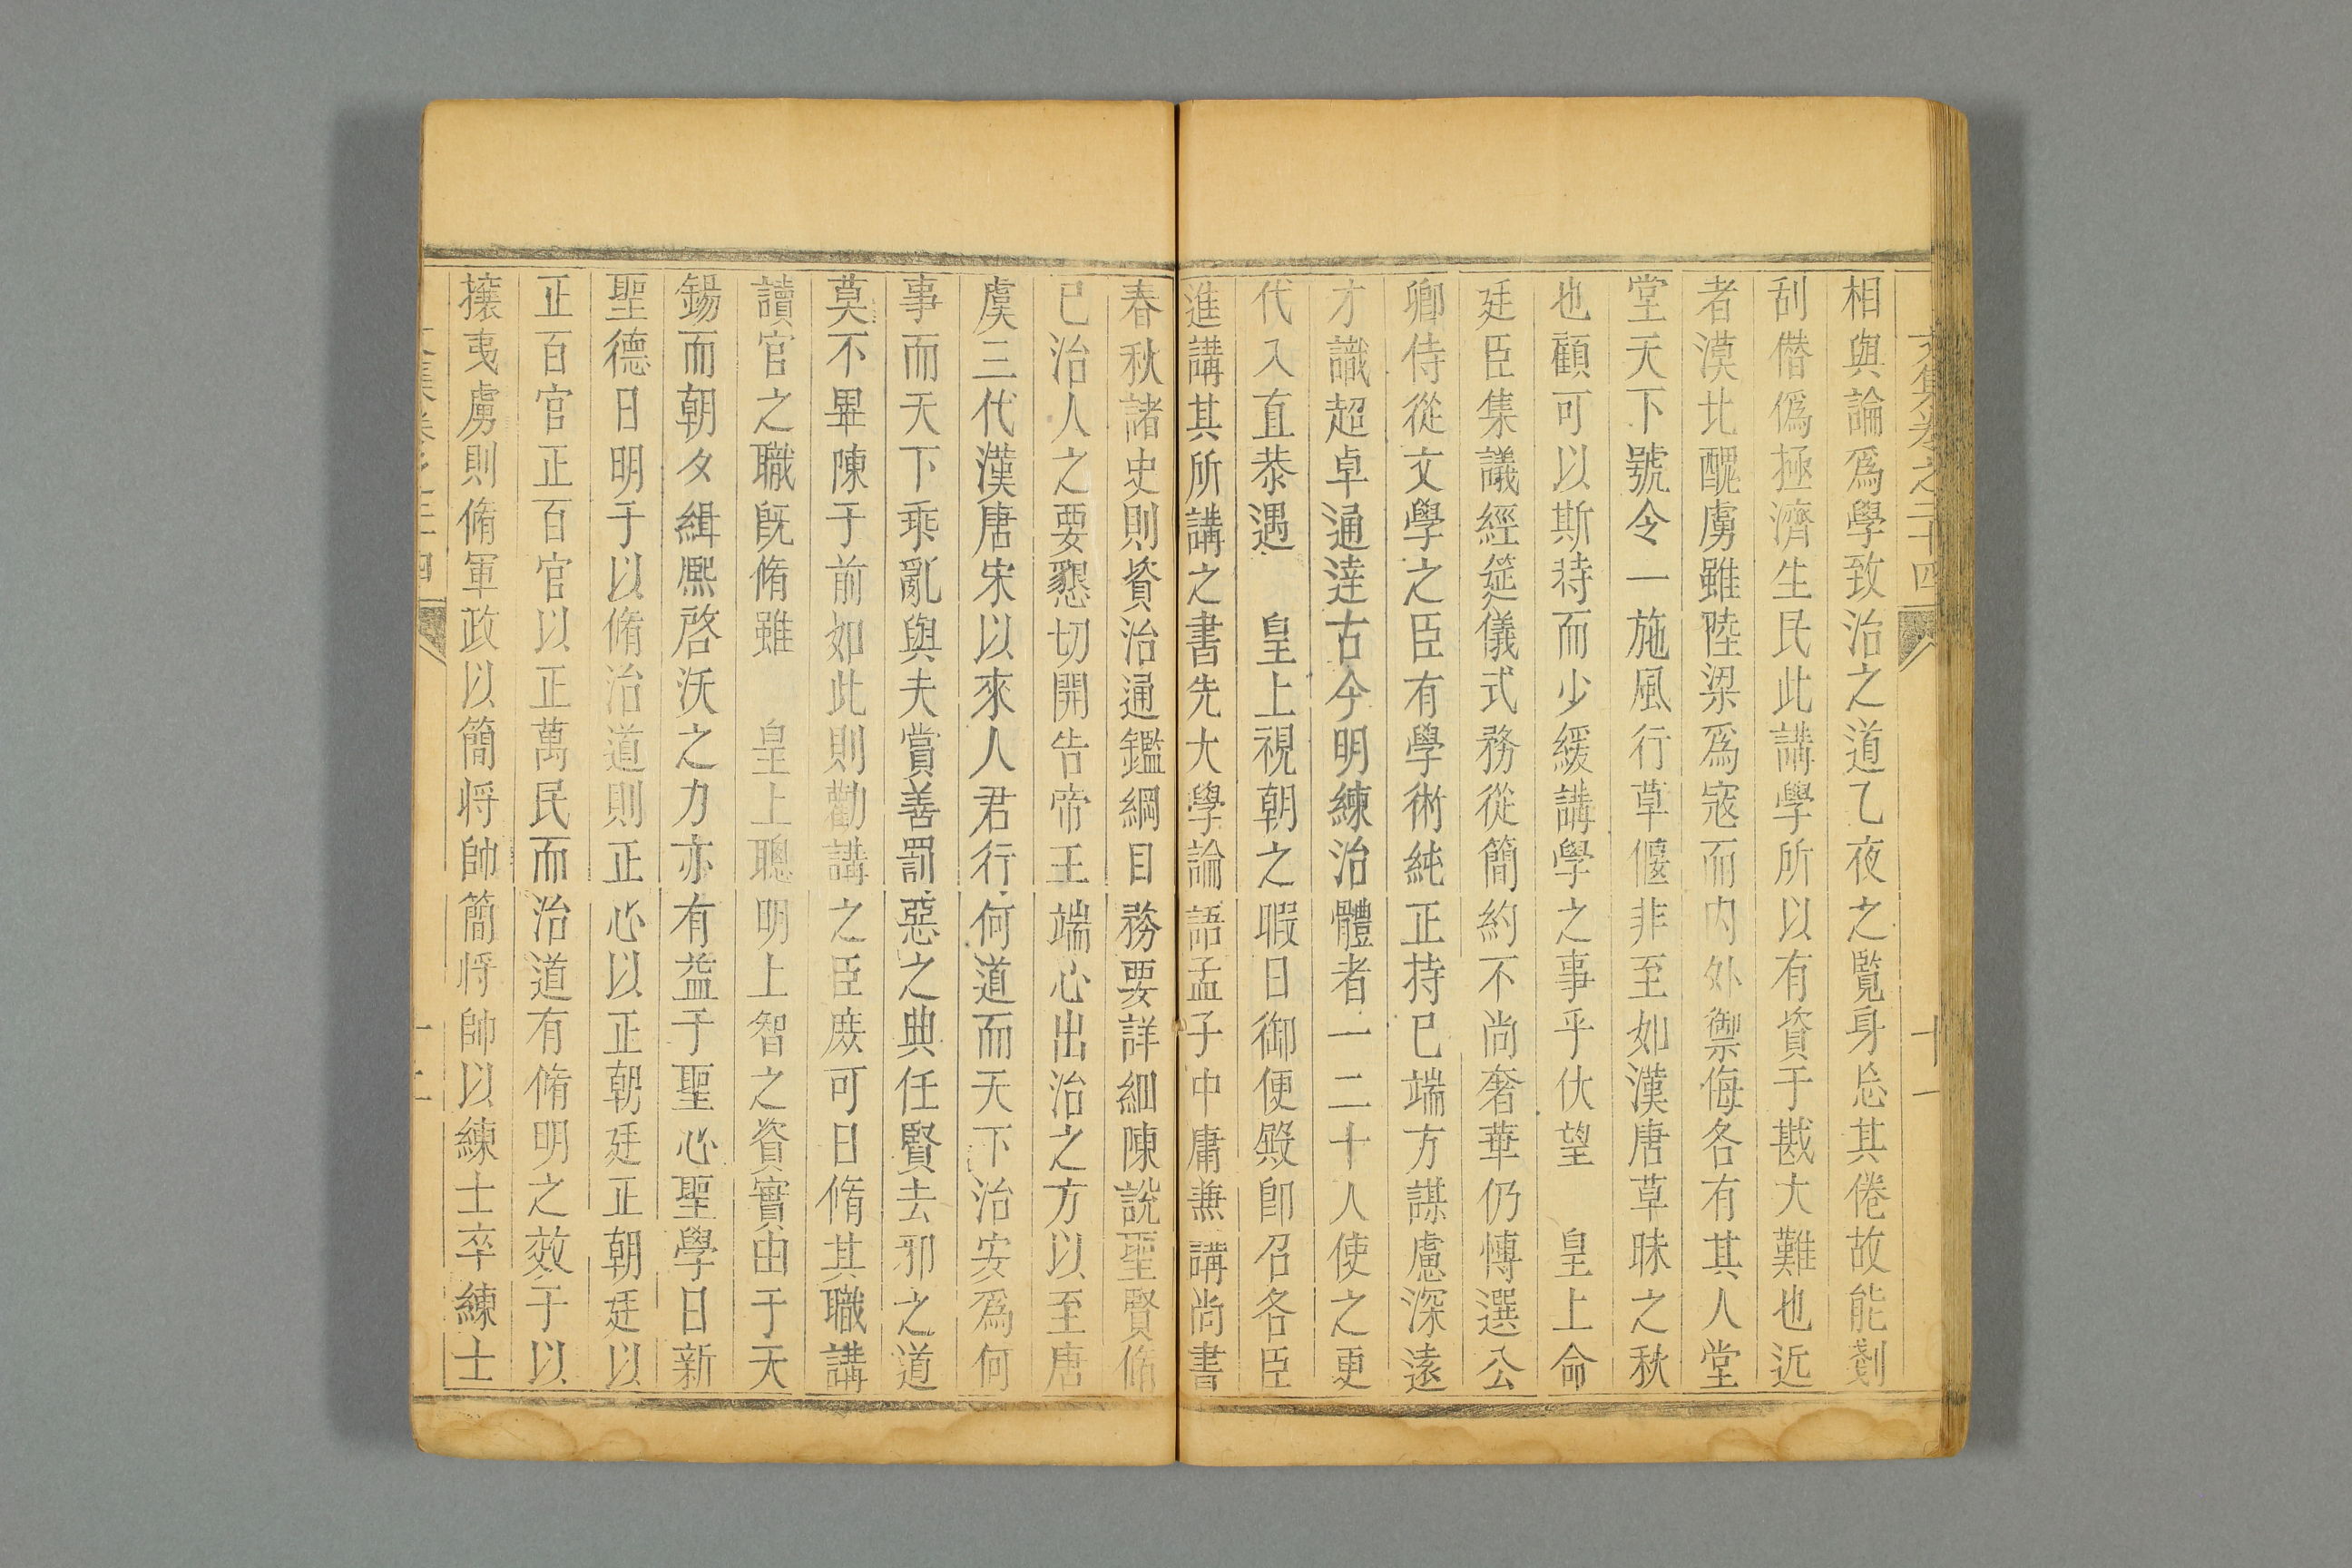 文集卷之二十四
十一
相與論爲學致治之道乙夜之覧身忘其倦故能剗
刮僣僞拯濟生民此講學所以有資于戡大難也近
者漠北醜虜雖陸梁爲寇而内外禦侮各有其人堂
堂天下號令一施風行草偃非至如漢唐草昧之秋
也顧可以斯待而少緩講學之事乎伏望 皇上命
廷臣集議經筵儀式務從簡約不尚奢華仍慱選公
卿侍從文學之臣有學術純正持已端方謀慮深遠
才識超卓通達古今明練治體者一二十人使之更
代入直恭遇 皇上視朝之暇日御便殿卽召各臣
進講其所講之書先大學論語孟子中庸兼講尚書
春秋諸史則資治通鑑綱目務要詳細陳説聖賢脩
已治人之要懇切開告帝王端心出治之方以至唐
虞三代漢唐宋以來人君行何道而天下治安爲何
事而天下乖亂與夫賞善罰惡之典任賢去邪之道
莫不畢陳于前如此則勸講之臣庻可日脩其職講
讀官之職旣脩雖 皇上聰明上智之資實由于天
錫而朝夕緝熈啓沃之力亦有益于聖心聖學日新
聖德日明于以脩治道則正心以正朝廷正朝廷以
正百官正百官以正萬民而治道有脩明之效于以
攘夷虜則脩軍政以簡将帥簡将帥以練士卒練士